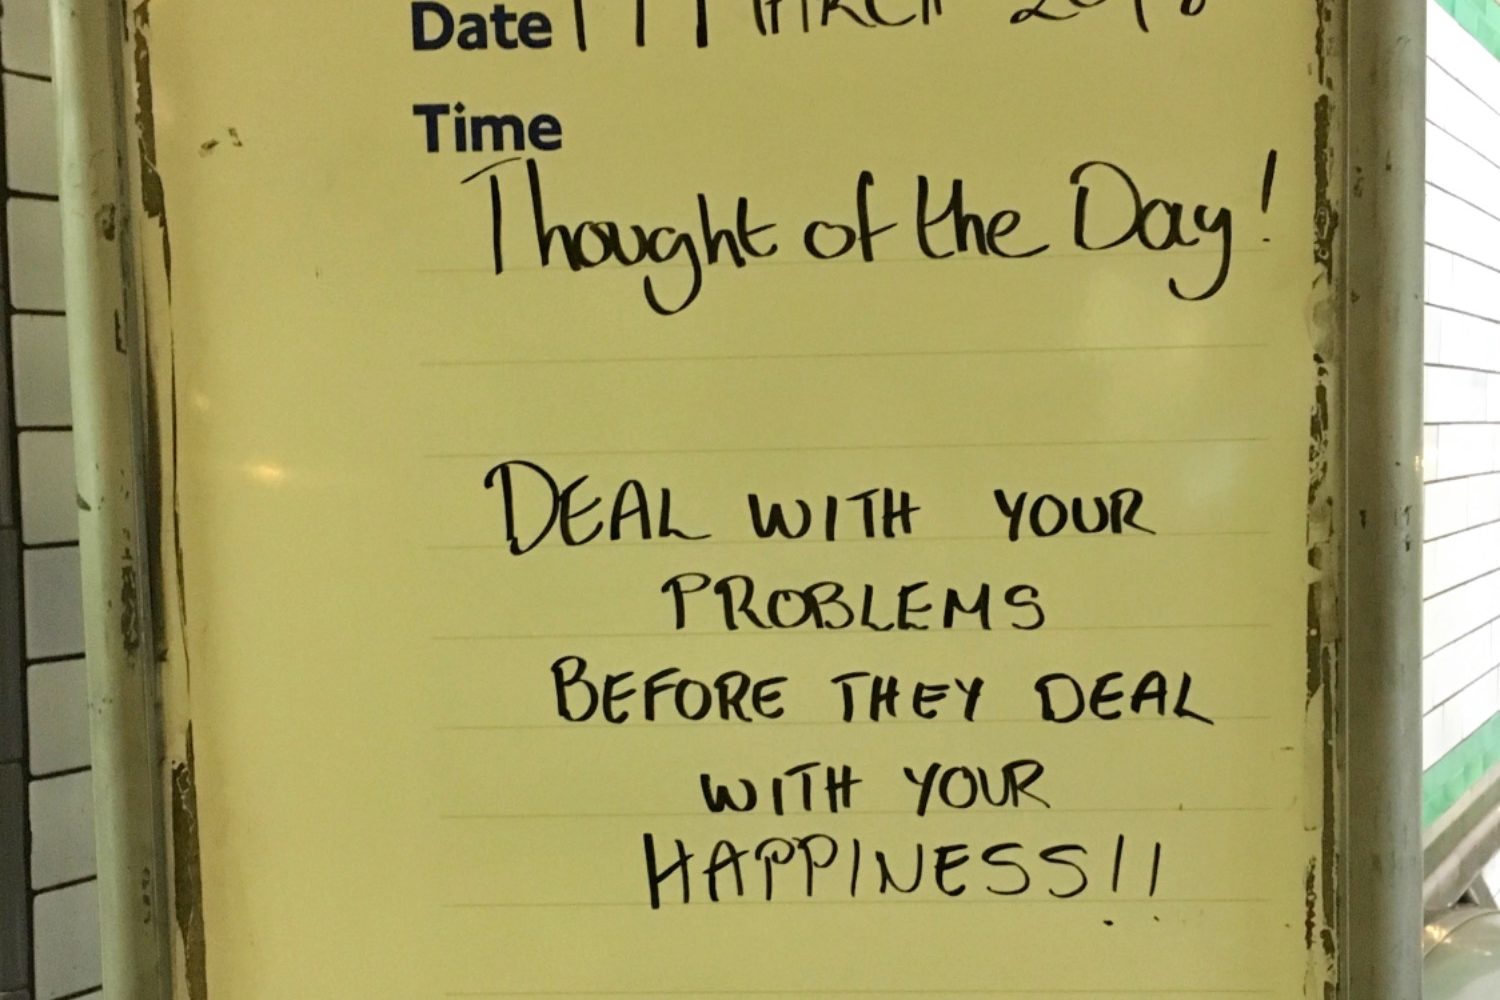 Date MARCH
Time
Thought of the Day!
DEAL WITH YOUR
PROBLEMS
BEFORE THEY DEAL
WITH YOUR
HAPPINESS!!